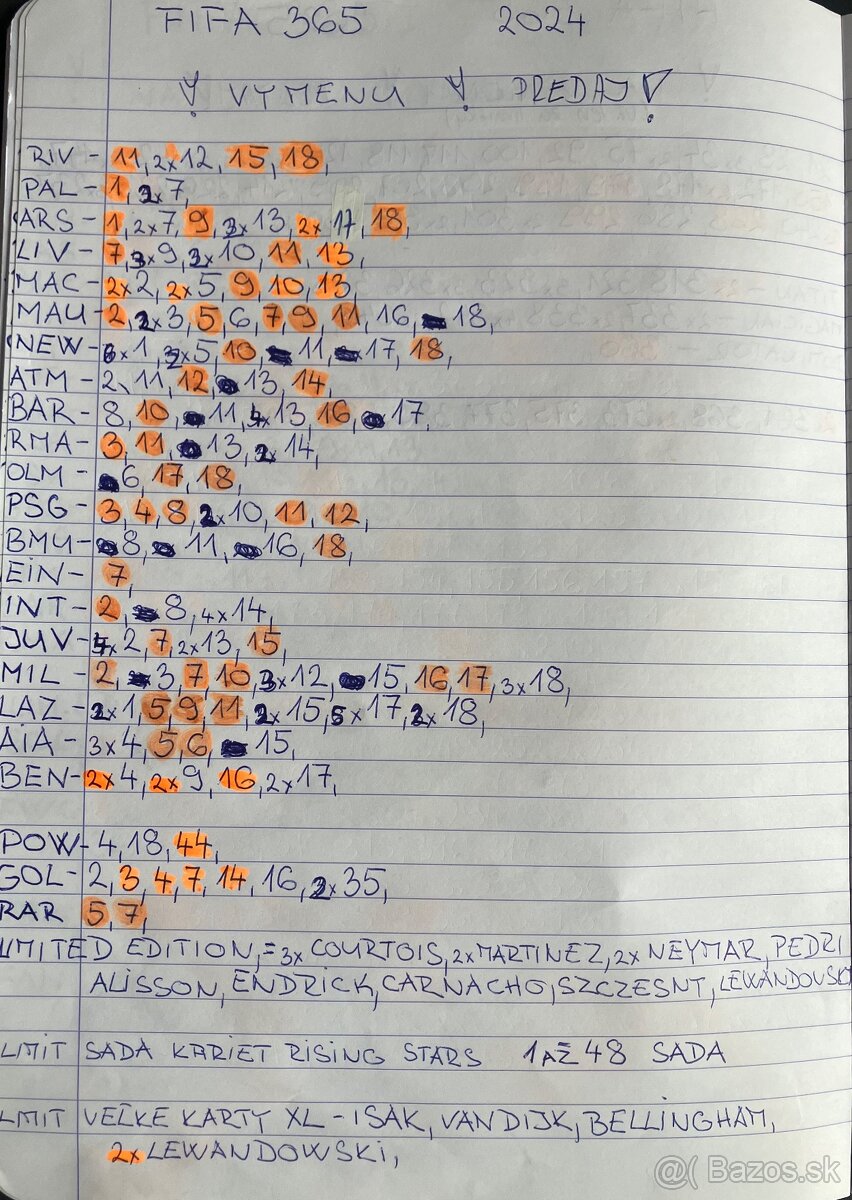 FIFA 365 2024
! VYMENU ! PREDAJ !
RIV - 11, 2x12, 15, 18,
PAL - 1, 2x7,
ARS - 1, 2x7, 9, 3x13, 2x 17, 18,
LIV - 7, 3x9, 3x10, 11, 13,
MAC - 2x2, 2x5, 9, 10, 13,
MAU - 2, 2x3, 5, 6, 7, 9, 11, 16, 18,
NEW - 6x1, 3x5, 10, 11, 17, 18,
ATM - 2, 11, 12, 13, 14,
BAR - 8, 10, 11, 4x13, 16, 17,
RMA - 3, 11, 13, 2x14,
OLM - 6, 17, 18,
PSG - 3, 4, 8, 2x10, 11, 12,
BMU - 8, 11, 16, 18,
EIN - 7,
INT - 2, 8, 4x14,
JUV - 4x2, 7, 2x13, 15,
MIL - 2, 3, 7, 10, 3x12, 15, 16, 17, 3x18,
LAZ - 2x1, 5, 9, 11, 2x15, 5x17, 2x18,
AJA - 3x4, 5, 6, 15,
BEN - 2x4, 2x9, 16, 2x17,
POW - 4, 18, 44,
GOL - 2, 3, 4, 7, 14, 16, 2x35,
RAR 5, 7,
LIMITED EDITION, = 3x COURTOIS, 2x MARTINEZ, 2x NEYMAR, PEDRI
ALISSON, ENDRICK, CARNACHO, SZCZESNT, LEWANDOWSKI
LIMIT SADA KARIET RISING STARS 1 AŽ 48 SADA
LIMIT VEĽKE KARTY XL - ISAK, VAN DIJK, BELLINGHAM,
2x LEWANDOWSKI,
@( Bazos.sk